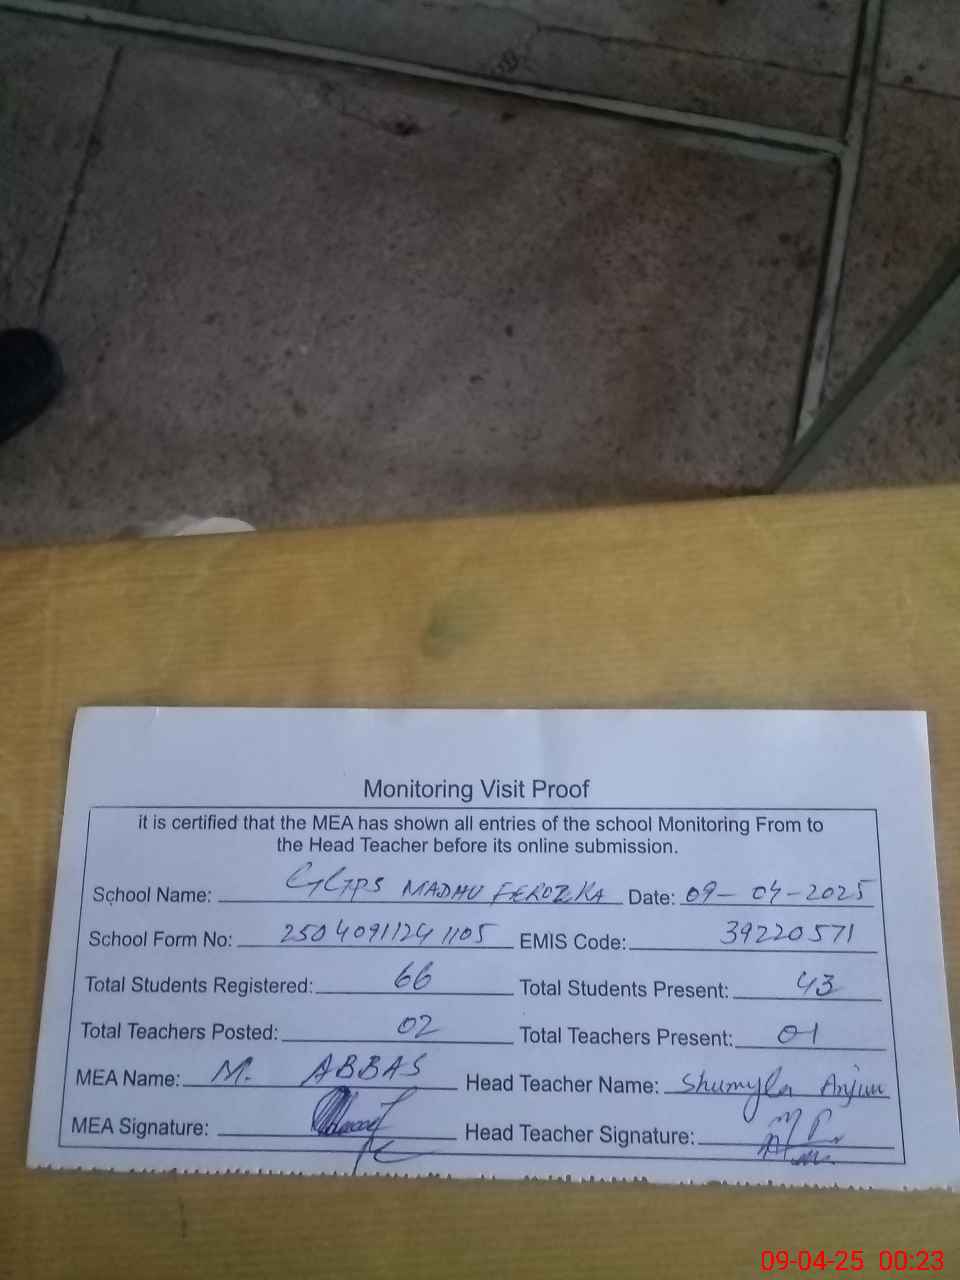 Monitoring Visit Proof
it is certified that the MEA has shown all entries of the school Monitoring From to
the Head Teacher before its online submission.
School Name: GGPS MADHU FEROZKA Date: 09-04-2025
School Form No: 25040911241105 EMIS Code: 39220571
Total Students Registered: 66 Total Students Present: 43
Total Teachers Posted: 02 Total Teachers Present: 01
MEA Name: M. ABBAS Head Teacher Name: Shumyla Anjum
MEA Signature: Head Teacher Signature:
09-04-25 00:23